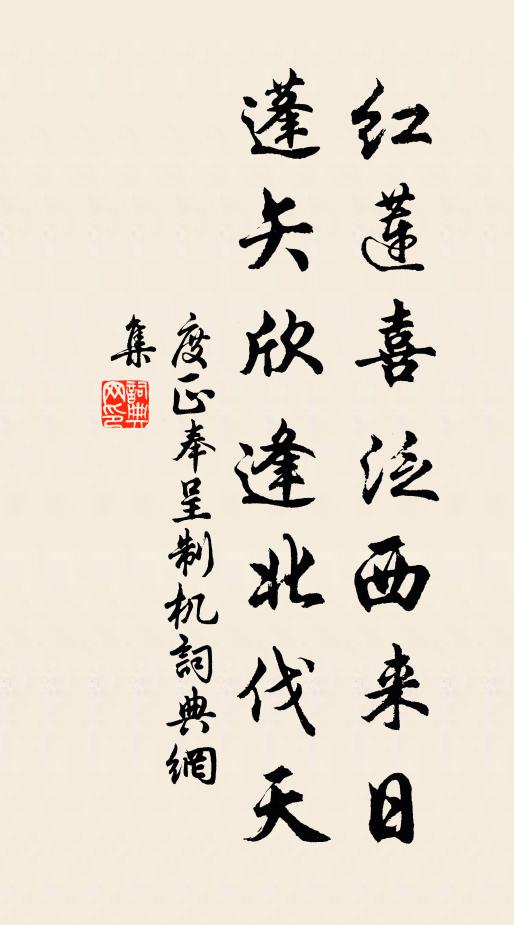 红莲喜泛西来日
蓬矢欣逢北伐天
度正奉呈制机詞典網
集
詞典
网印